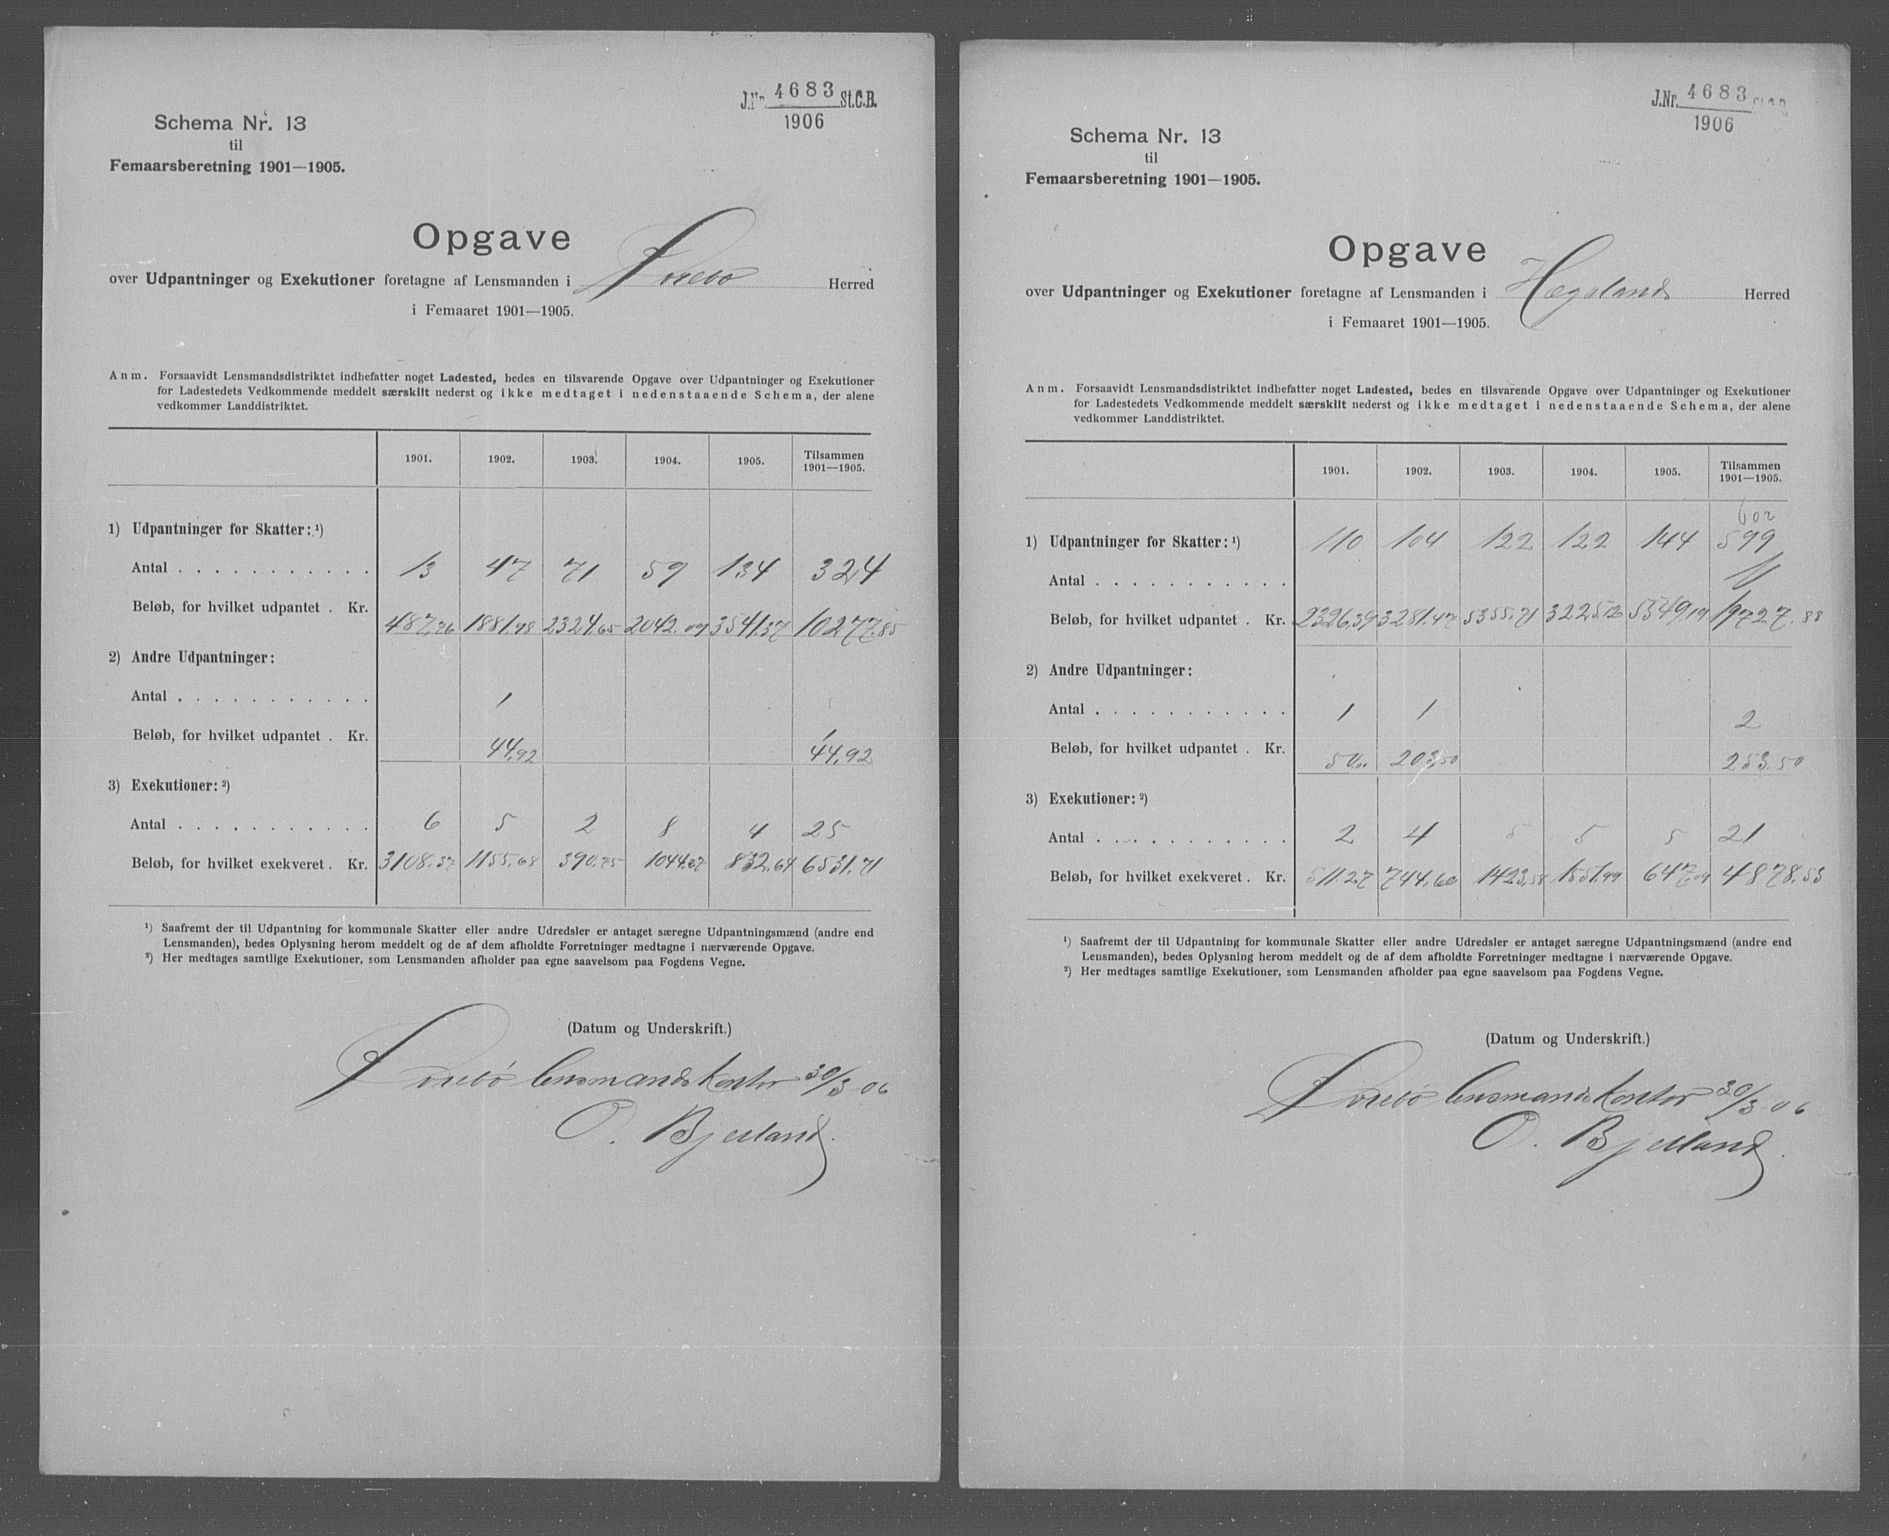 J.Nr. 4683 St.C.B.
1906
Schema Nr. 13
til
Femaarsberetning 1901—1905.
Opgave
over Udpantninger og Exekutioner foretagne af Lensmanden i Iveebo Herred
i Femaaret 1901—1905.
Anm. Forsaavidt Lensmandsdistriktet indbefatter noget Ladested, bedes en tilsvarende Opgave over Udpantninger og Exekutioner
for Ladestedets Vedkommende meddelt særskilt nederst og ikke medtaget i nedenstaaende Schema, der alene
vedkommer Landdistriktet.
1901. 1902. 1903. 1904. 1905. Tilsammen 1901—1905.
1) Udpantninger for Skatter: ¹)
Antal . . . . . . . . . . . 13 47 71 59 134 324
Beløb, for hvilket udpantet . Kr. 487,76 1881,98 2324,65 2042.09 3541.37 10277.85
2) Andre Udpantninger:
Antal . . . . . . . . . . . 1 1
Beløb, for hvilket udpantet . Kr. 44,92 44,92
3) Exekutioner: ²)
Antal . . . . . . . . . . . 6 5 2 8 4 25
Beløb, for hvilket exekveret . Kr. 3108.37 1155.68 390.75 1044.27 832.64 6531.71
¹) Saafremt der til Udpantning for kommunale Skatter eller andre Udredsler er antaget særegne Udpantningsmænd (andre end
Lensmanden), bedes Oplysning herom meddelt og de af dem afholdte Forretninger medtagne i nærværende Opgave.
²) Her medtages samtlige Exekutioner, som Lensmanden afholder paa egne saavelsom paa Fogdens Vegne.
(Datum og Underskrift.)
lensmandskontor 30/3 06
O. Bjelland.
J.Nr. 4683
1906
Schema Nr. 13
til
Femaarsberetning 1901—1905.
Opgave
over Udpantninger og Exekutioner foretagne af Lensmanden i Hægelands Herred
i Femaaret 1901—1905.
Anm. Forsaavidt Lensmandsdistriktet indbefatter noget Ladested, bedes en tilsvarende Opgave over Udpantninger og Exekutioner
for Ladestedets Vedkommende meddelt særskilt nederst og ikke medtaget i nedenstaaende Schema, der alene
vedkommer Landdistriktet.
1901. 1902. 1903. 1904. 1905. Tilsammen 1901—1905.
602
1) Udpantninger for Skatter: ¹) 110 104 122 122 144 599
Antal . . . . . . . . . . .
Beløb, for hvilket udpantet . Kr. 2326,39 3281.47 5355.71 3225.12 5549,19 19727.88
2) Andre Udpantninger:
Antal . . . . . . . . . . . 1 1 2
Beløb, for hvilket udpantet . Kr. 50,00 203,50 253.50
3) Exekutioner: ²)
Antal . . . . . . . . . . . 2 4 5 5 5 21
Beløb, for hvilket exekveret . Kr. 511.27 744.60 1423,58 1551.99 647,09 4878.53
¹) Saafremt der til Udpantning for kommunale Skatter eller andre Udredsler er antaget særegne Udpantningsmænd (andre end
Lensmanden), bedes Oplysning herom meddelt og de af dem afholdte Forretninger medtagne i nærværende Opgave.
²) Her medtages samtlige Exekutioner, som Lensmanden afholder paa egne saavelsom paa Fogdens Vegne.
(Datum og Underskrift.)
lensmandskontor 30/3 06
O. Bjelland.